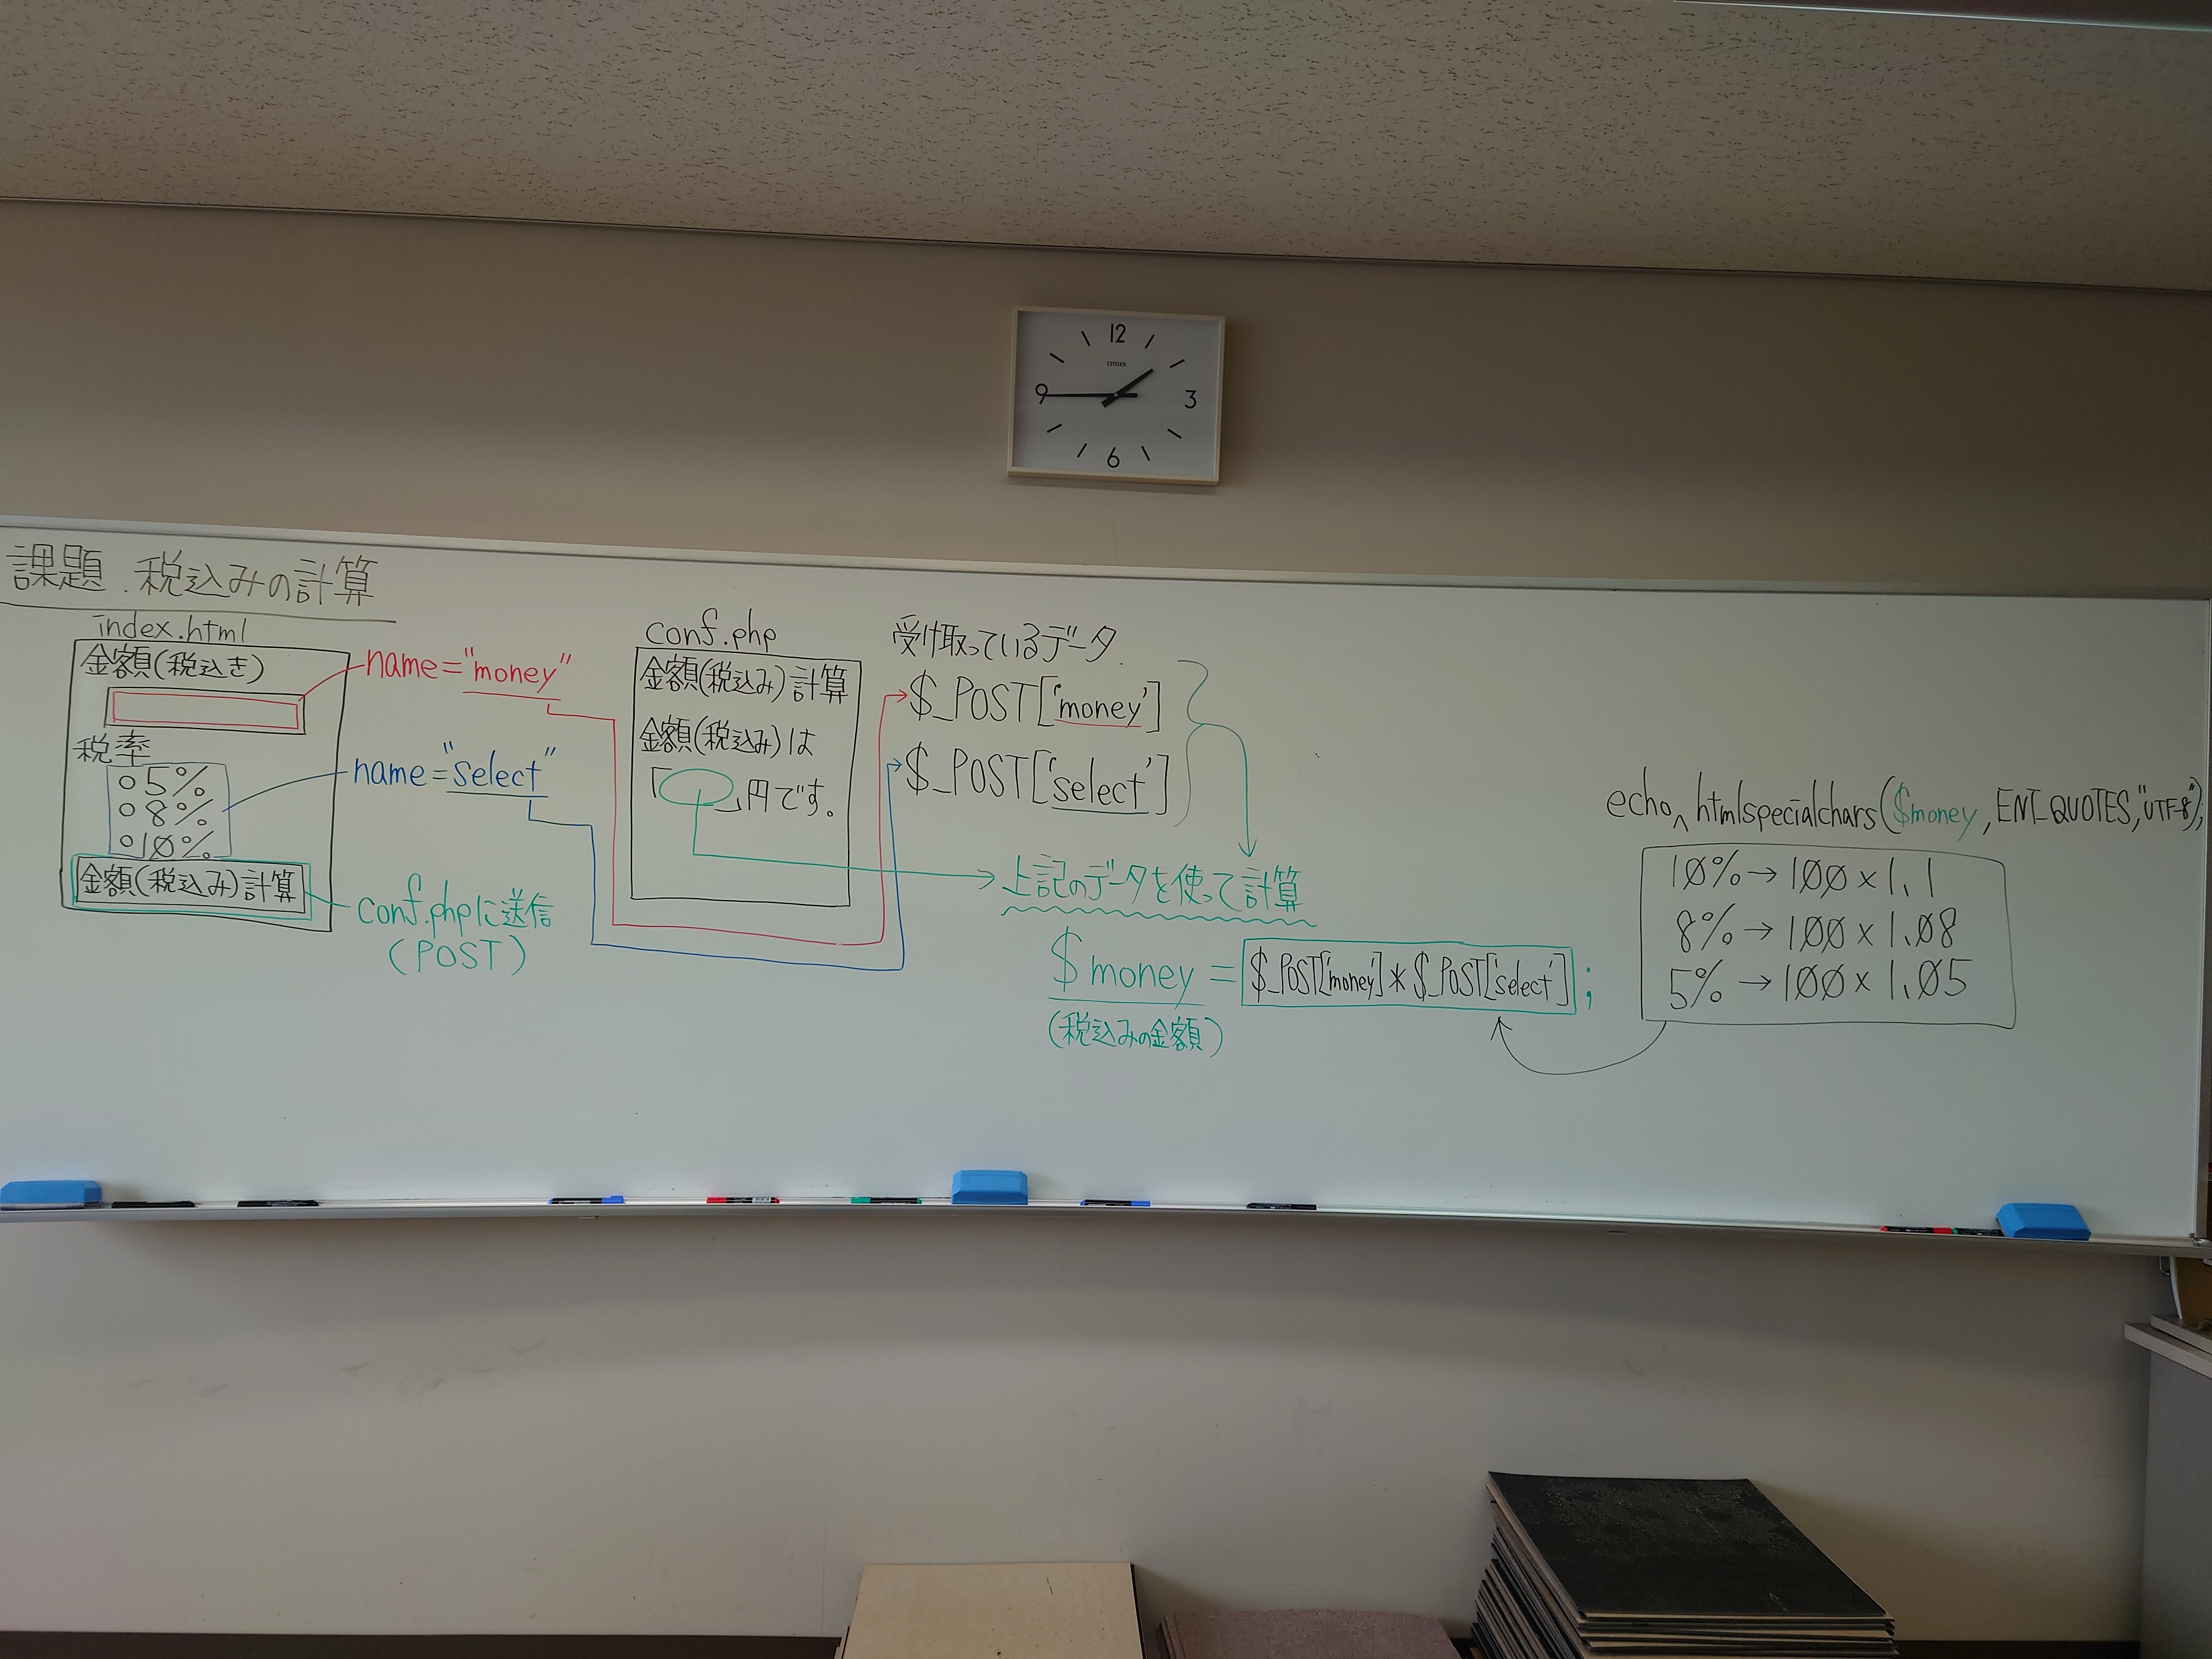 12
3
6
9
CITIZEN
課題.税込みの計算
index.html
金額(税込き)
税率
○5%
○8%
○10%
金額(税込み)計算
name="money"
name="select"
conf.phpに送信
(POST)
conf.php
金額(税込み)計算
金額(税込み)は
「 」円です。
受け取っているデータ.
$_POST['money']
$_POST['select']
上記のデータを使って計算
$money = $_POST['money'] * $_POST['select'] ;
(税込みの金額)
echo htmlspecialchars($money, ENT_QUOTES,"UTF-8");
10%→100×1.1
8%→100×1.08
5%→100×1.05